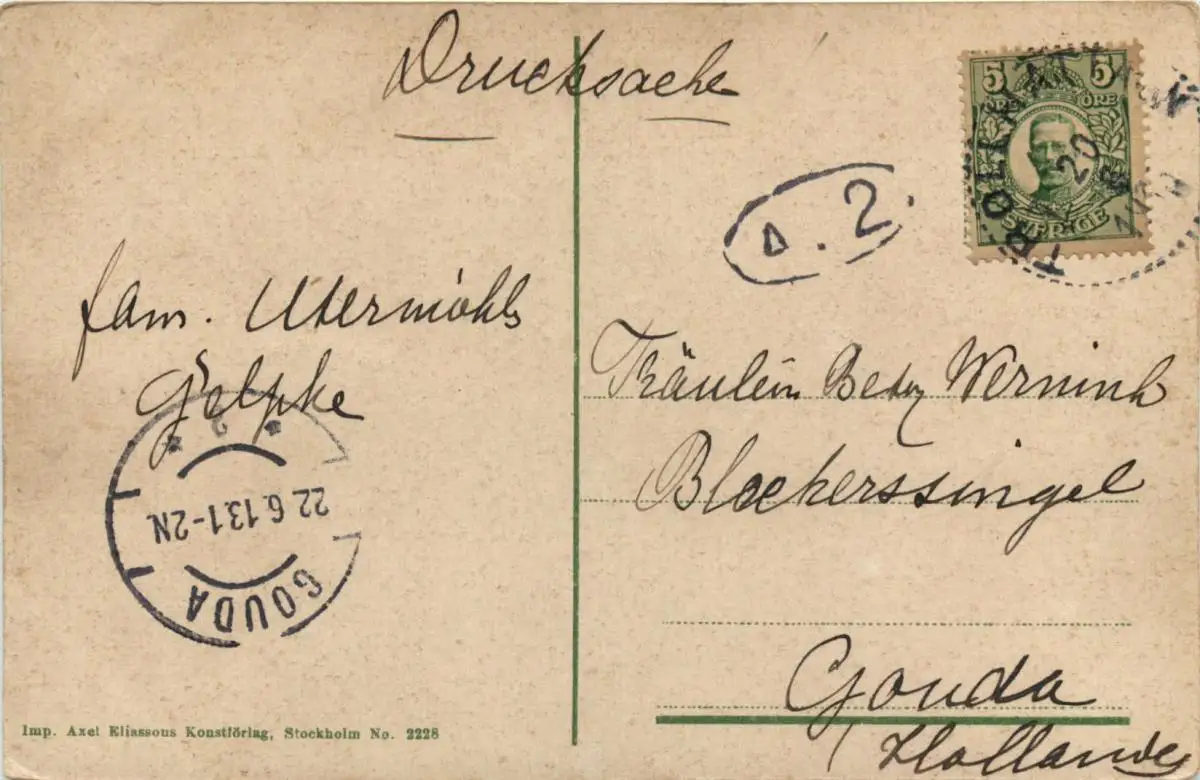 Drucksache
5 5
ÖRE ÖRE
SVERIGE
TROLLHÄTTAN
20
Δ. 2.
fam. Utermöhls
Gelpke
Fräulein Betzy Wernink
Bleekerssingel
Gouda
Hollande
2
22 6.13 1-2N
GOUDA
Imp. Axel Eliassons Konstförlag, Stockholm No. 2228